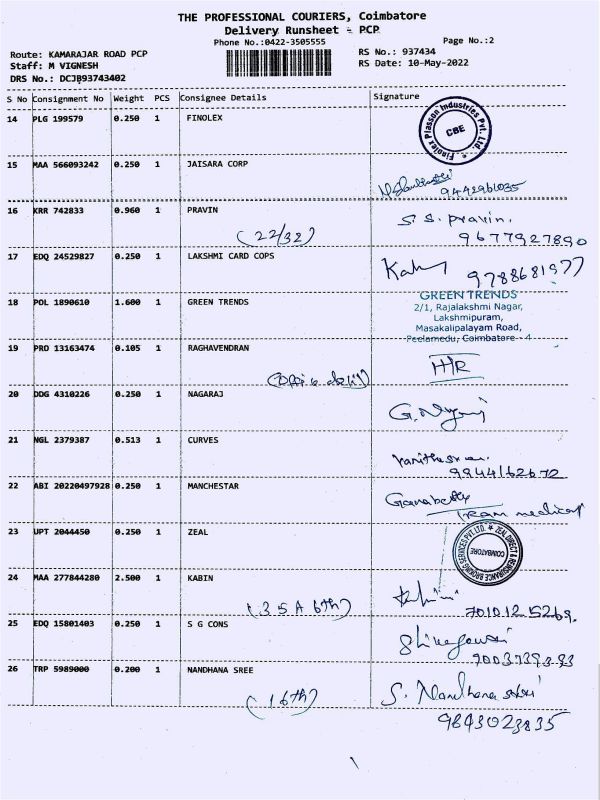 THE PROFESSIONAL COURIERS, Coimbatore
Delivery Runsheet - PCP
Phone No.:0422-3505555
Page No.:2
Route: KAMARAJAR ROAD PCP
RS No.: 937434
Staff: M VIGNESH
RS Date: 10-May-2022
DRS No.: DCJB93743402
S No Consignment No Weight PCS Consignee Details Signature
14 PLG 199579 0.250 1 FINOLEX
Finolex Plasson Industries Pvt. Ltd.
CBE
15 MAA 566093242 0.250 1 JAISARA CORP
9442961035
16 KRR 742833 0.960 1 PRAVIN S. S. pravin.
(22/32) 9677927890
17 EDQ 24529827 0.250 1 LAKSHMI CARD COPS
9788681977
18 POL 1890610 1.600 1 GREEN TRENDS
GREEN TRENDS
2/1, Rajalakshmi Nagar,
Lakshmipuram,
Masakalipalayam Road,
Peelamedu, Coimbatore - 4
19 PRO 13163474 0.105 1 RAGHAVENDRAN
20 DDG 4310226 0.250 1 NAGARAJ
21 NGL 2379387 0.513 1 CURVES
9944162672
22 ABI 20220497928 0.250 1 MANCHESTAR
Team medical
23 UPT 2044450 0.250 1 ZEAL
ZEAL DIRECT & REINSURANCE BROKING SERVICES PVT. LTD.
COIMBATORE
24 MAA 277844280 2.500 1 KABIN
(35 A 6th) 7010125269.
25 EDQ 15801403 0.250 1 S G CONS
26 TRP 5989000 0.200 1 NANDHANA SREE
(16th) S. Nandhana shri
9843023835